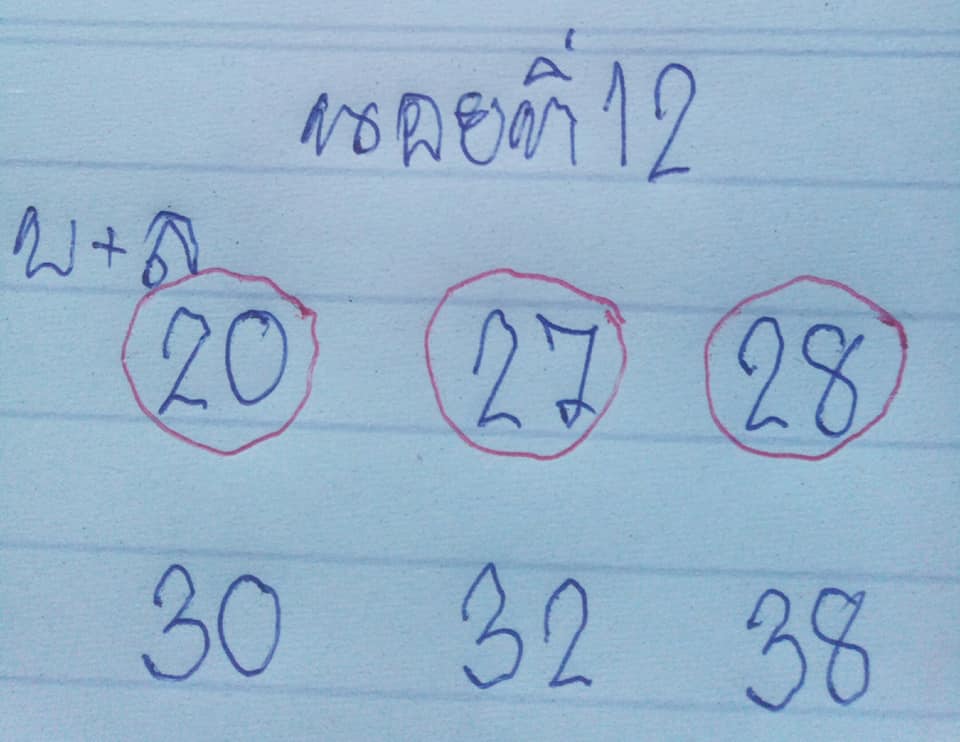 หรอยที่ 12
บ+ล
20 27 28
30 32 38